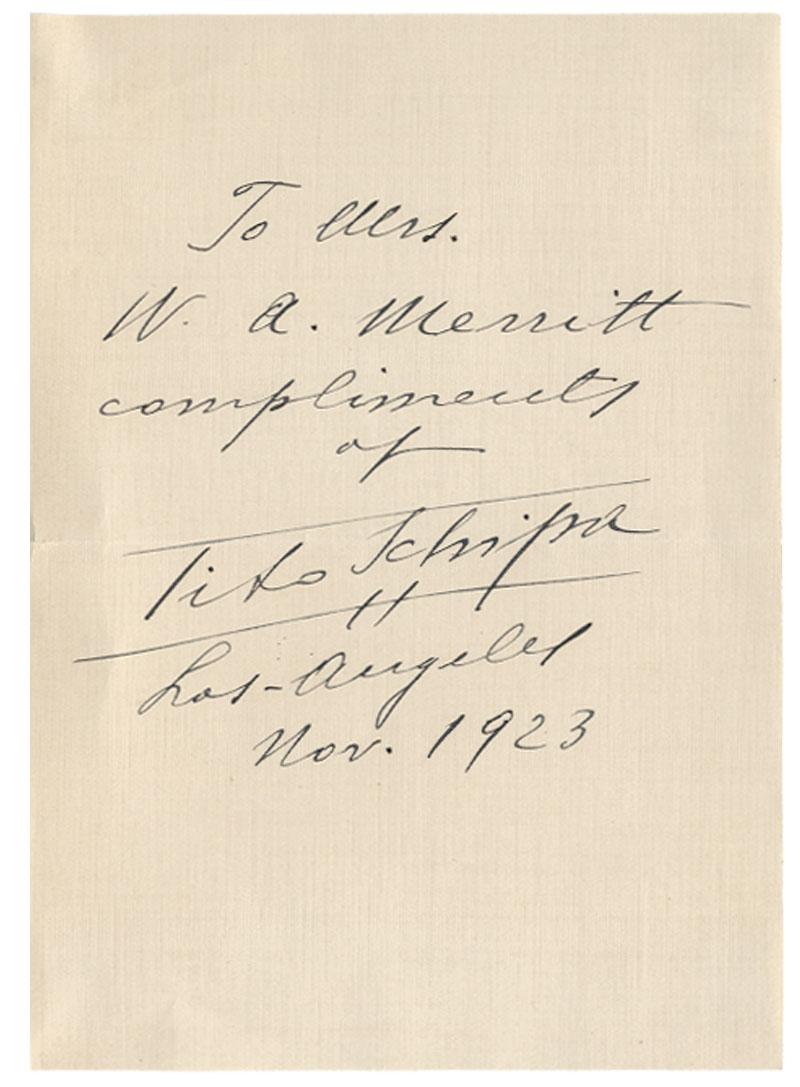 To Mrs.
W. A. Merritt
compliments
of
Tito Schipa
Los-Angeles
Nov. 1923